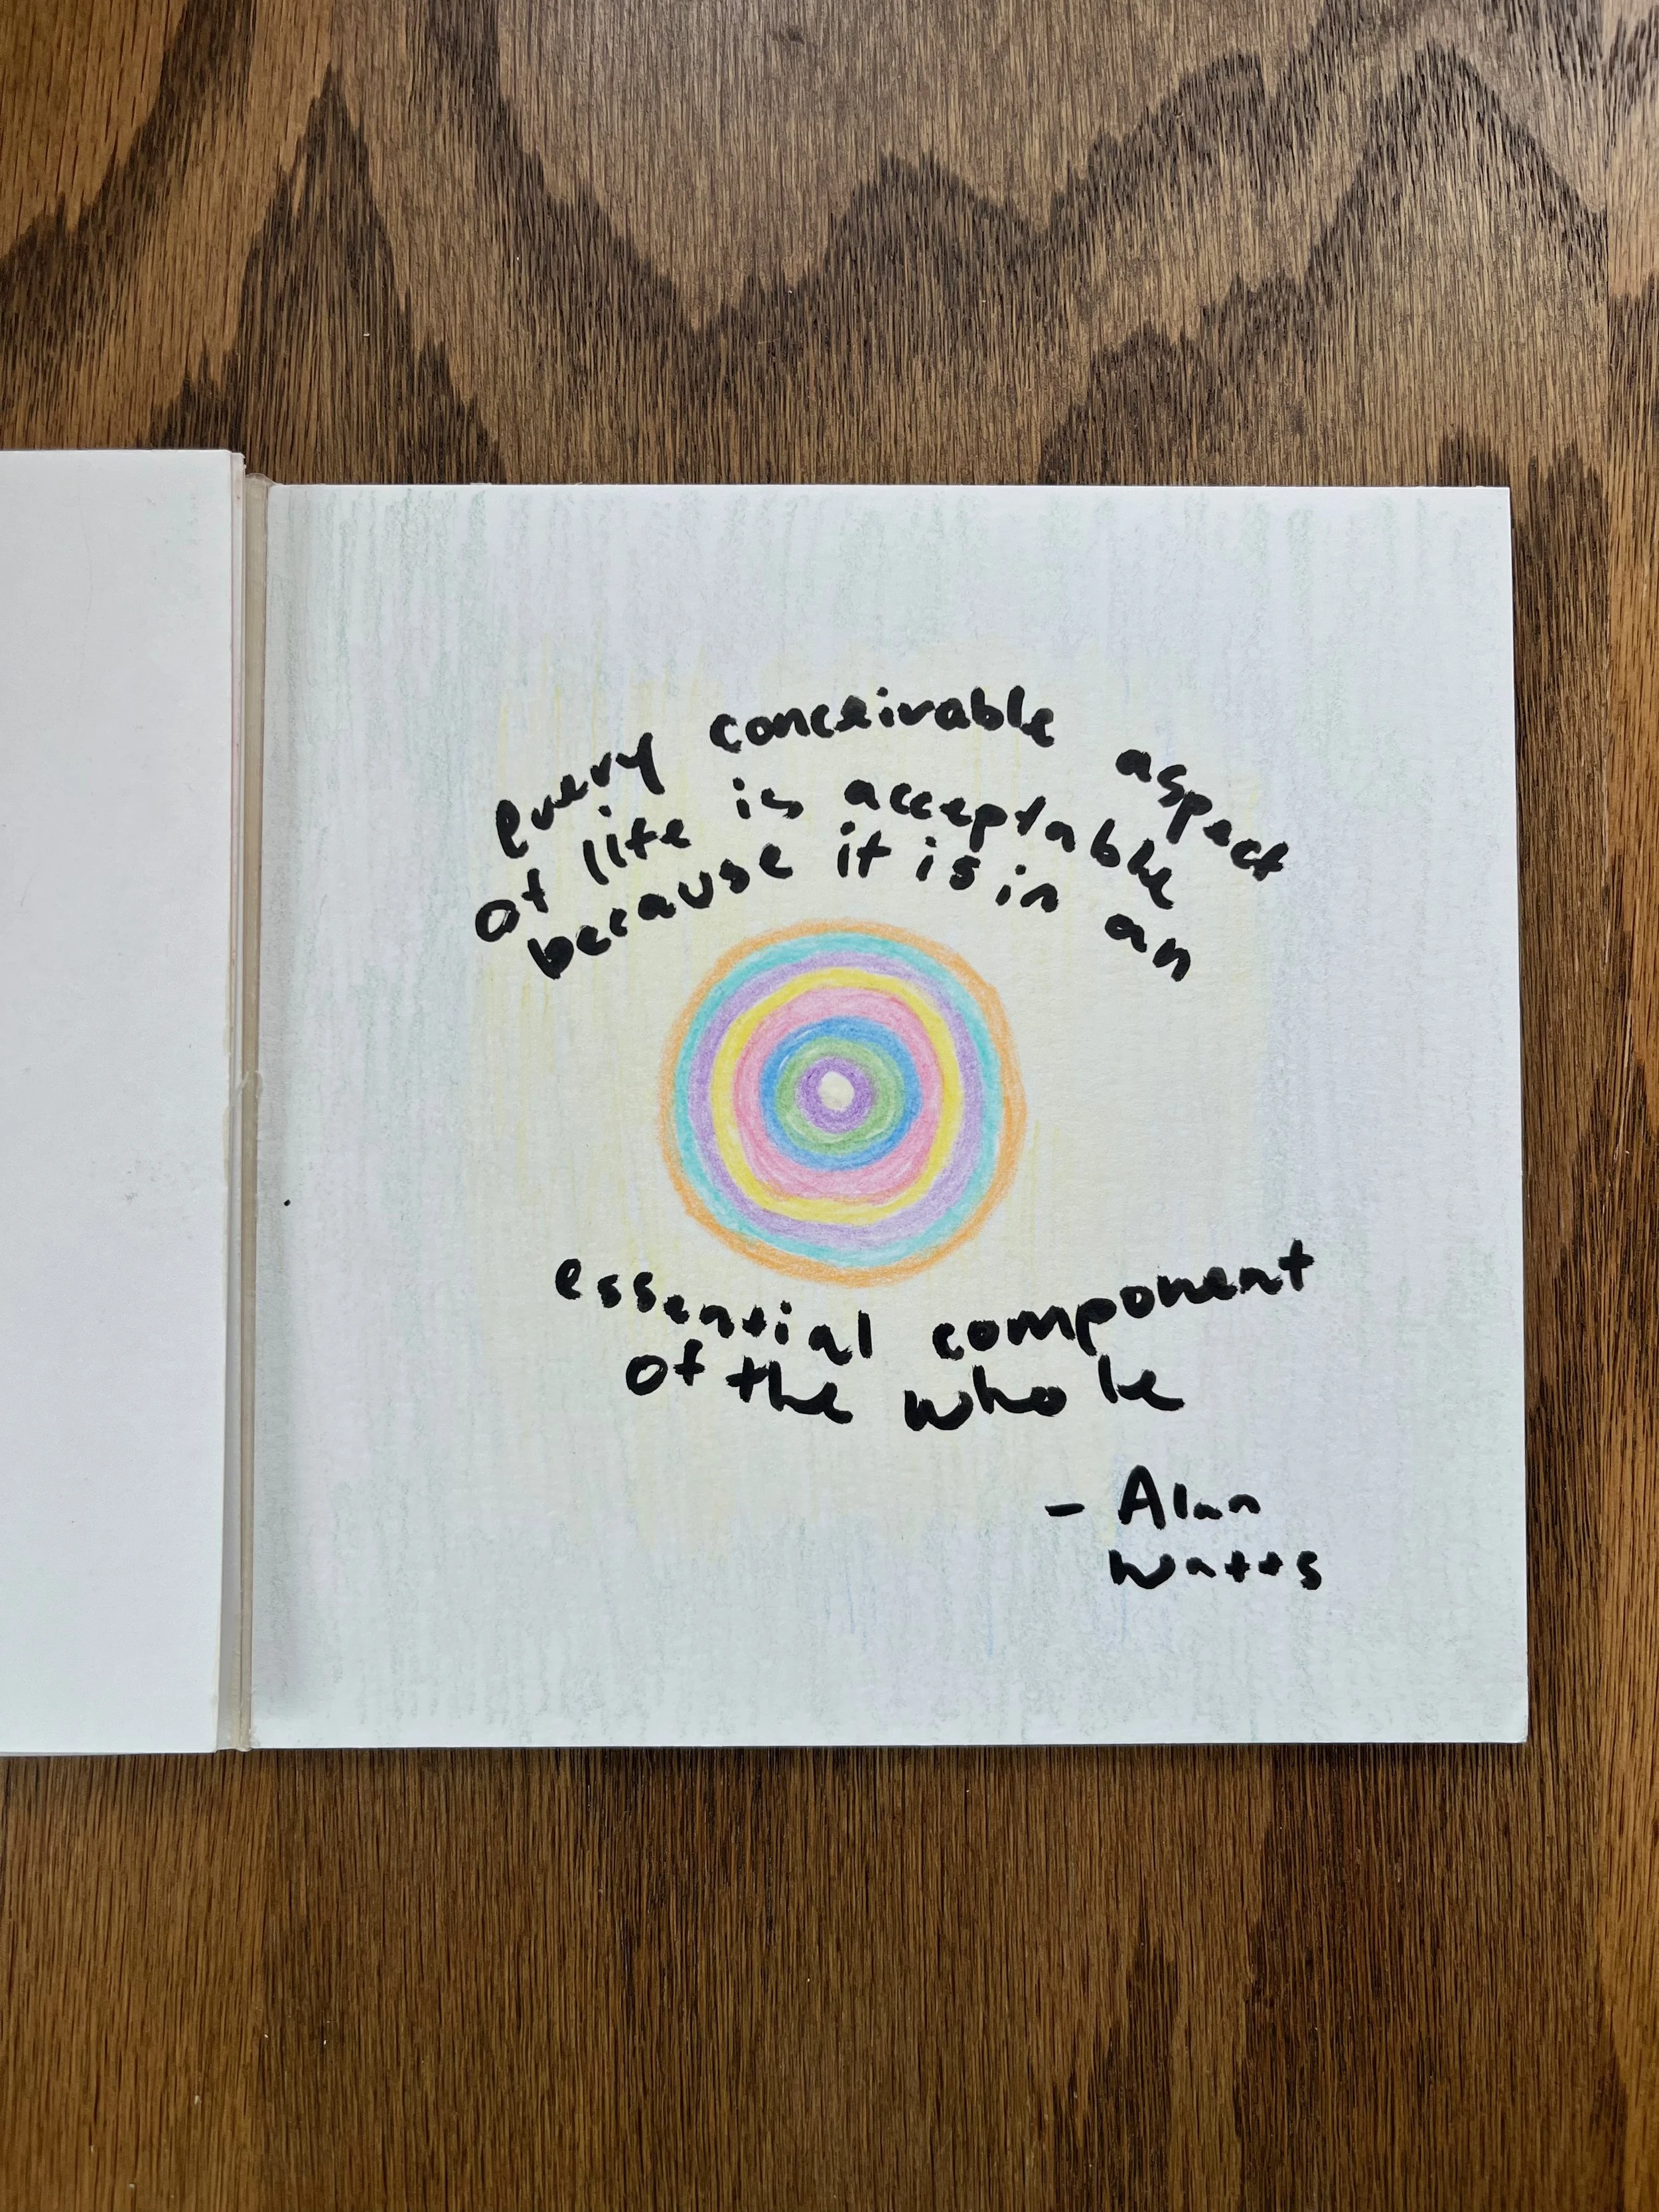 every conceivable aspect
of life is acceptable
because it is in an
essential component
of the whole
- Alan
Watts